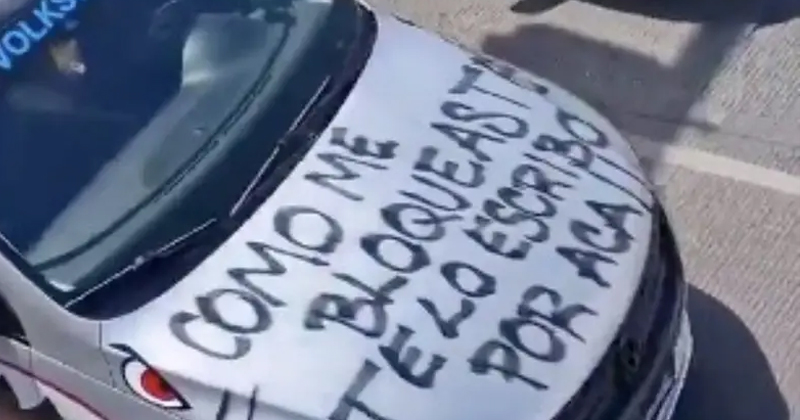 VOLKS
COMO ME
BLOQUEASTE
TE LO ESCRIBO
POR ACA